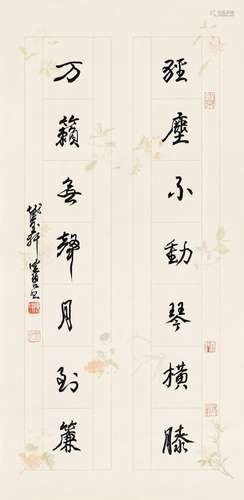 經塵不動琴橫膝
萬籟無聲月到簾